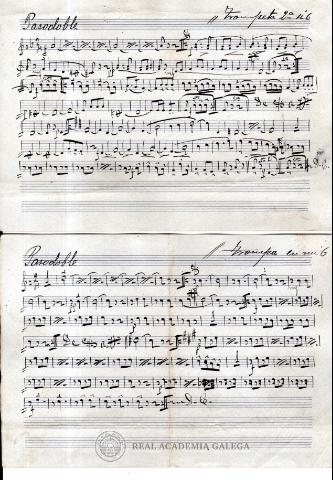 Pasodoble
Trompeta 2ª mi b
D.C.
Pasodoble
Trompa en mi b
D.C.
REAL ACADEMIA GALEGA